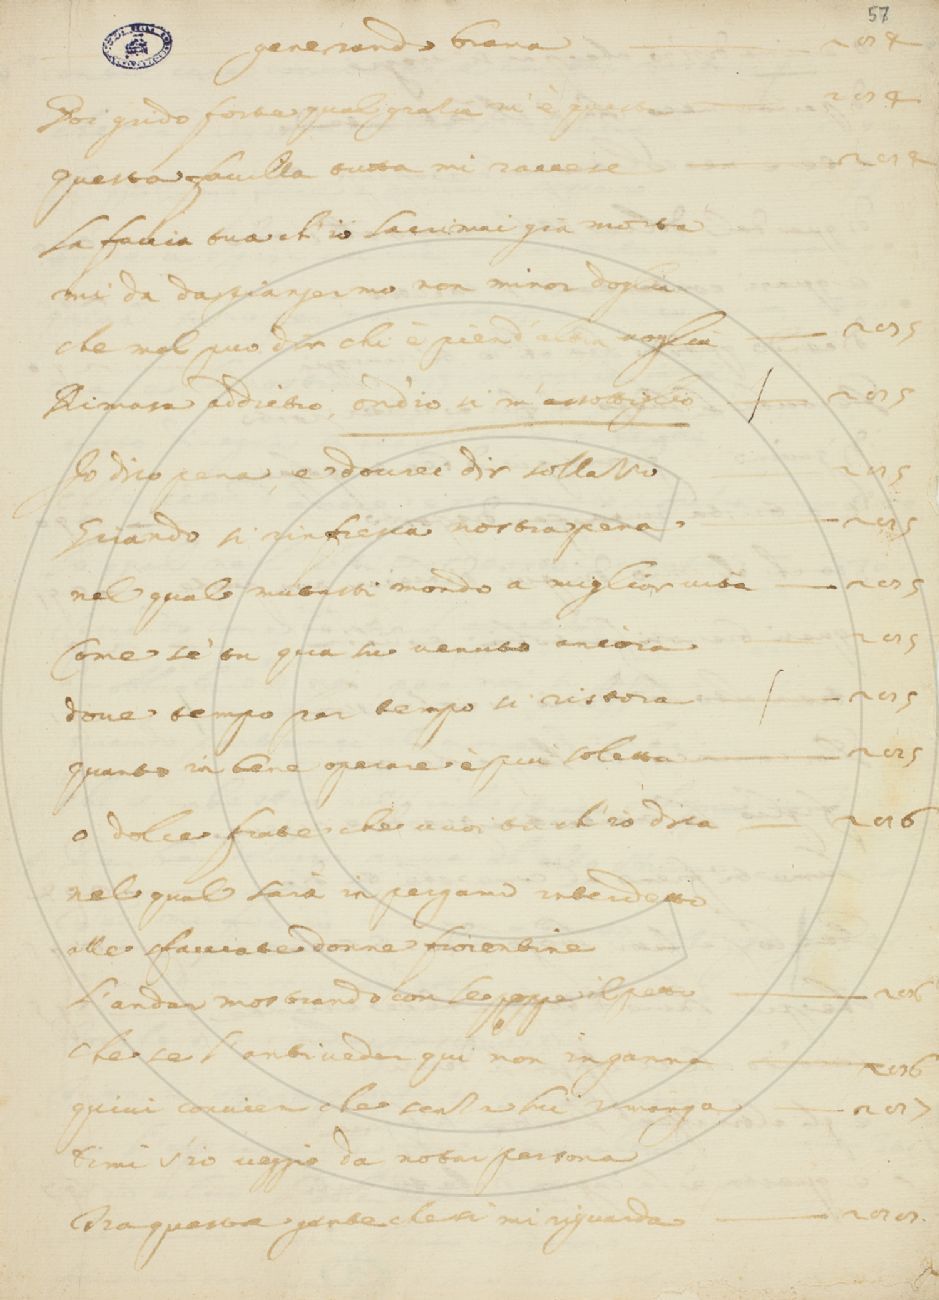 57
generando brama — 204
Poi gridò forte qual gratia m'è questa — 204
questa favilla tutta mi raccese — 204
La faccia tua ch'io lacrimai già morta
mi dà di pianger mo non minor doglia
che mal può dir chi è pien d'altra voglia — 205
Rimasa addietro, ond'io sì m'assottiglio — 205
Io dico pena, e dovrei dir sollazzo — 205
Girando si rinfresca nostra pena — 205
nel qual mutasti mondo a miglior vita — 205
Come sè tu qua su venuto ancora — 205
dove tempo per tempo si ristora — 205
quanto in bene operare è più soletta — 205
o dolce frate che vuoi tu ch'io dica — 206
nel qual sarà in pergamo interdetto
alle sfacciate donne fiorentine
L'andar mostrando con le poppe il petto — 206
che se l'antiveder qui non inganna — 206
quivi convien che senza lui rimanga — 207
dimmi s'io veggio da notar persona
tra questa gente che sì mi riguarda — 207.